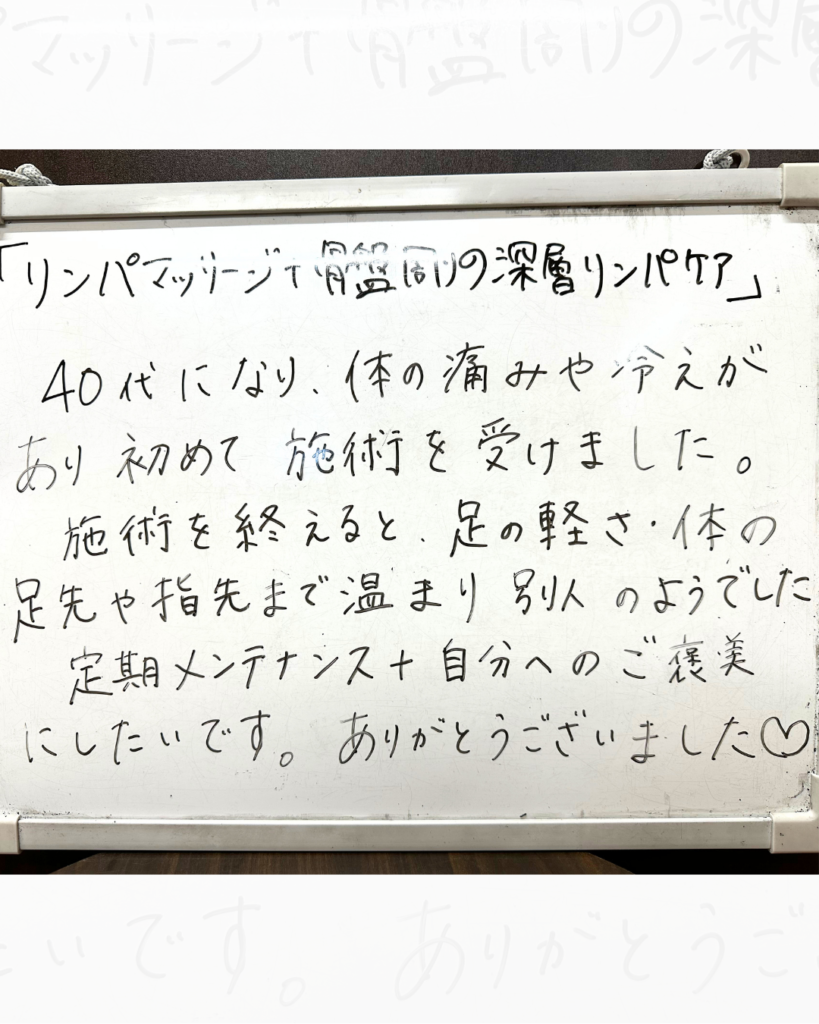 「リンパマッサージ+骨盤周りの深層リンパケア」
40代になり、体の痛みや冷えが
あり初めて施術を受けました。
施術を終えると、足の軽さ・体の
足先や指先まで温まり別人のようでした
定期メンテナンス+自分へのご褒美
にしたいです。ありがとうございました♡